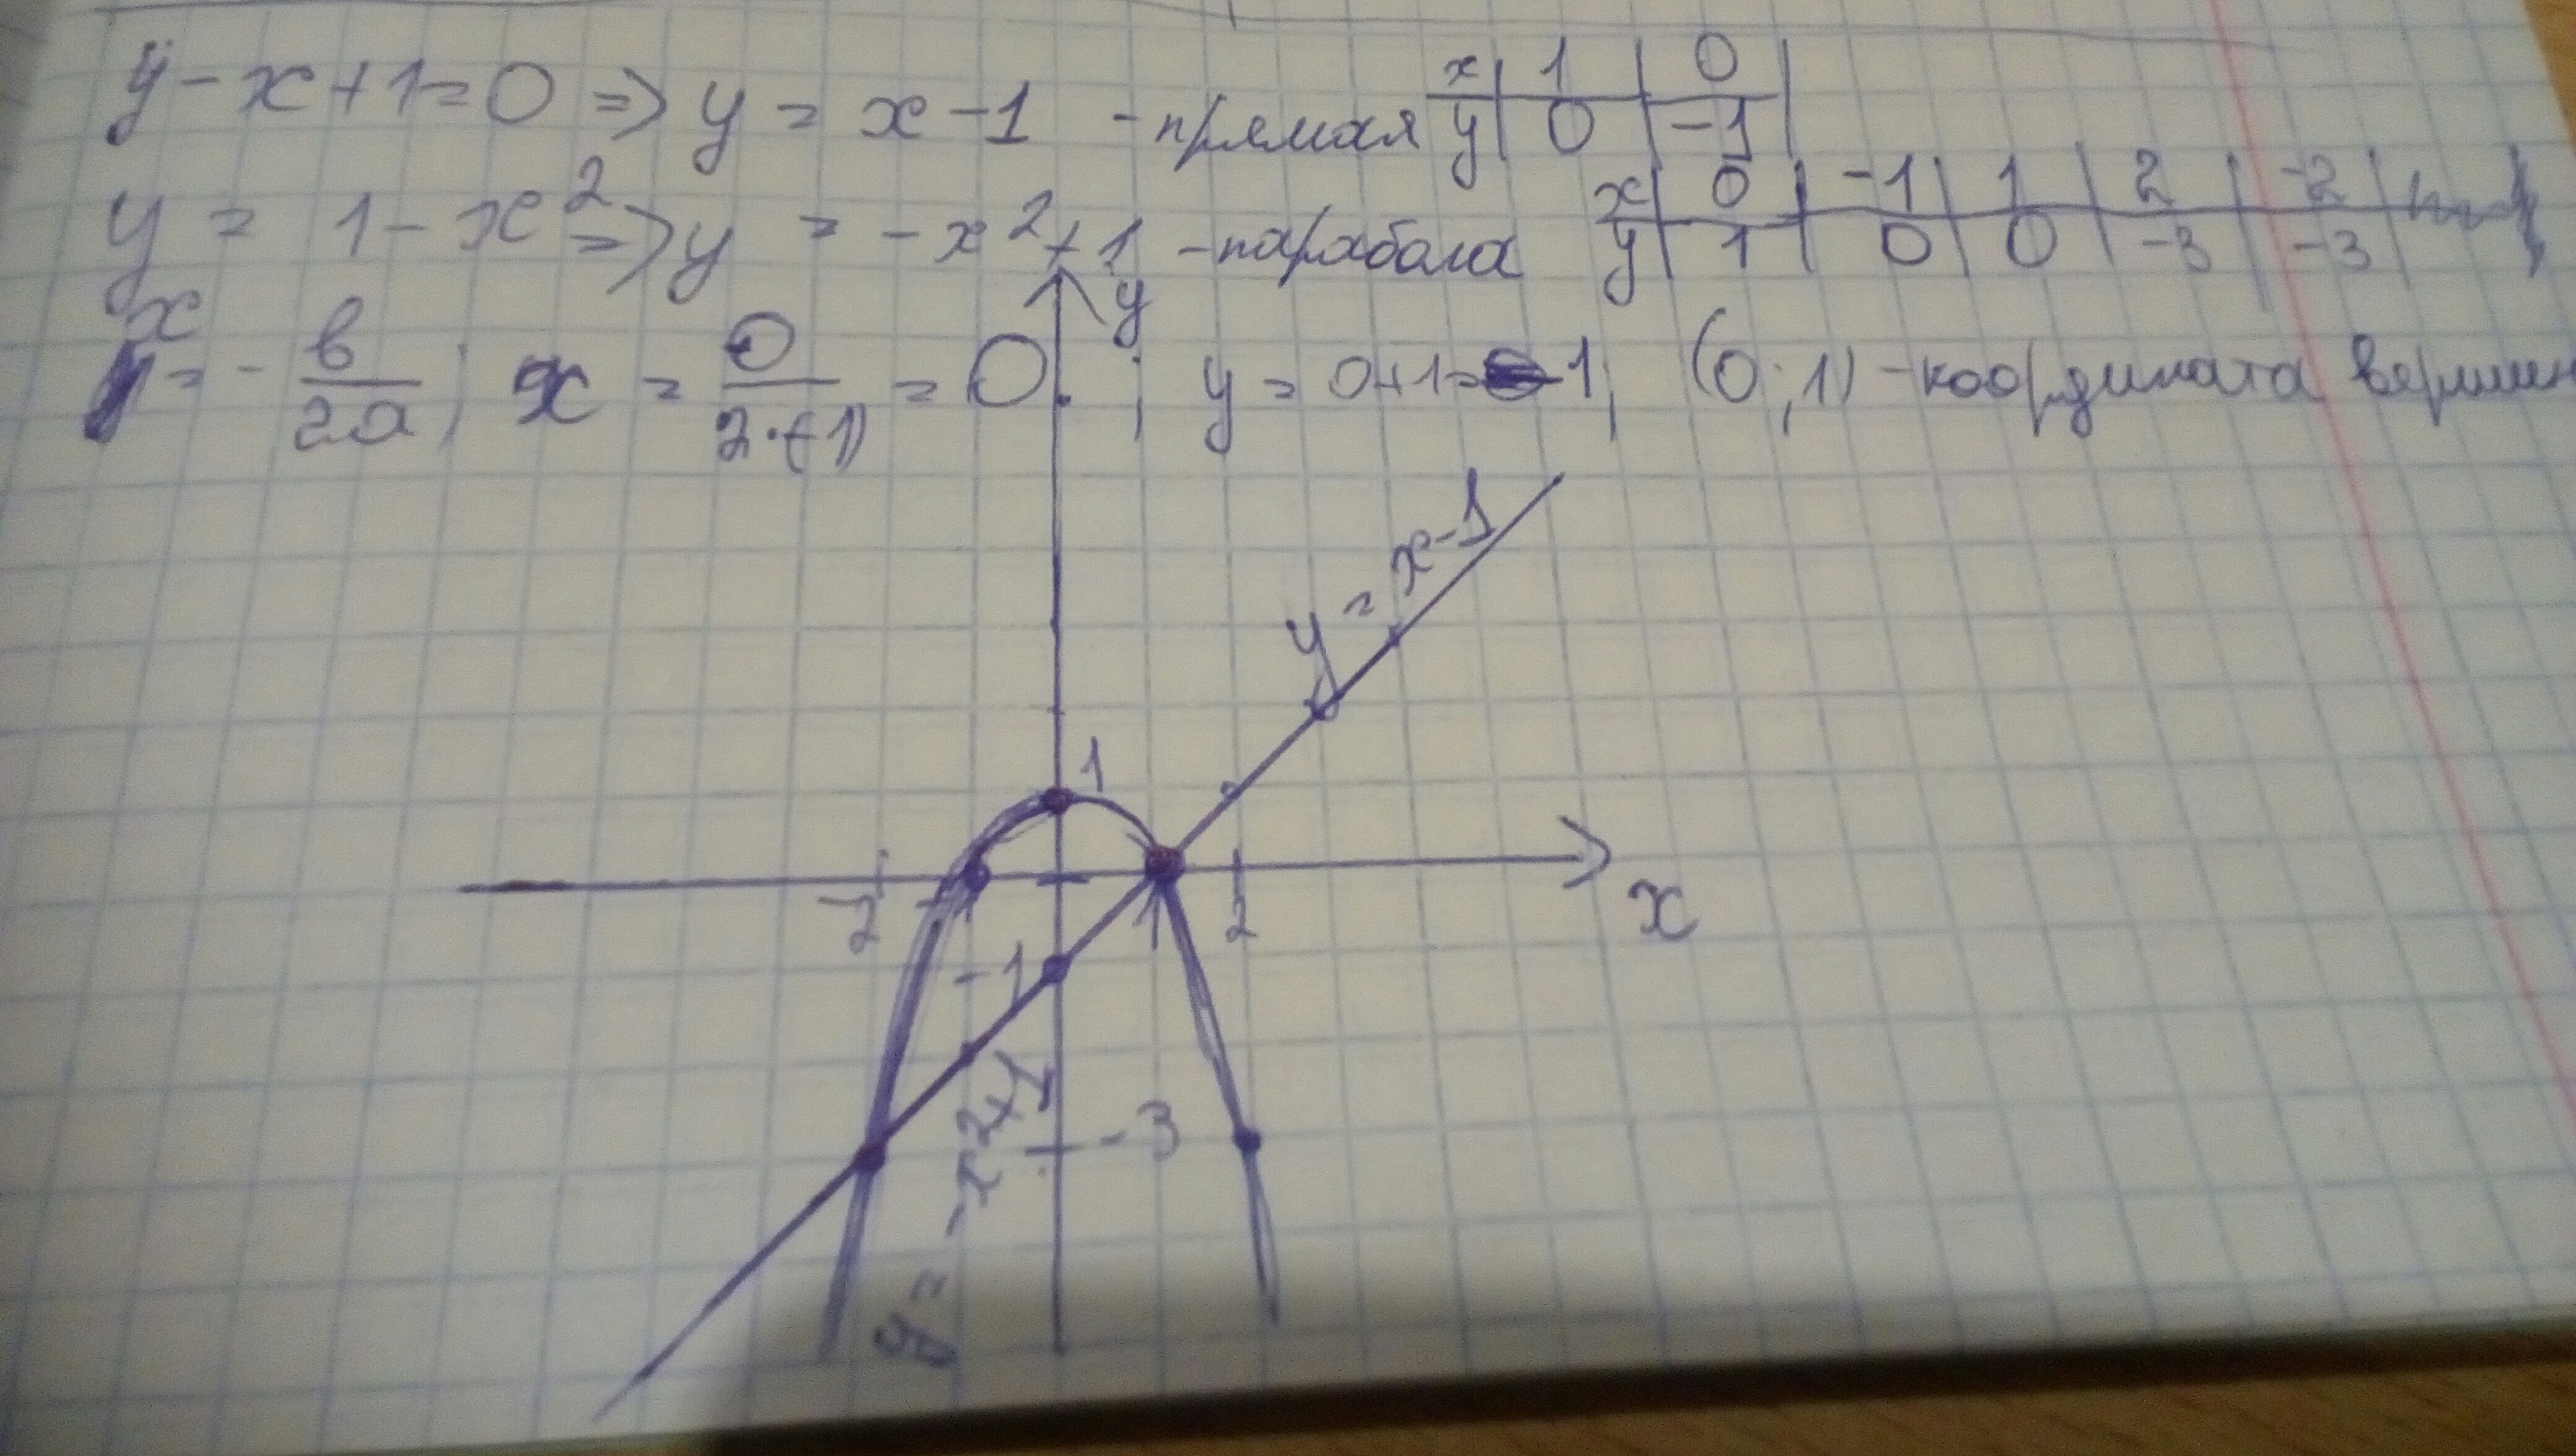 y - x + 1 = 0 => y = x - 1 - прямая
x | 1 | 0
y | 0 | -1
y = 1 - x² => y = -x² + 1 - парабола
x | 0 | -1 | 1 | 2 | -2
y | 1 | 0 | 0 | -3 | -3
x = - в/2a ; x = 0/2·(-1) = 0 ; y = 0+1=1; (0;1) - координата вершин
y
y = x-1
1
-2 -1 1 2
x
-1
-3
y = -x²+1